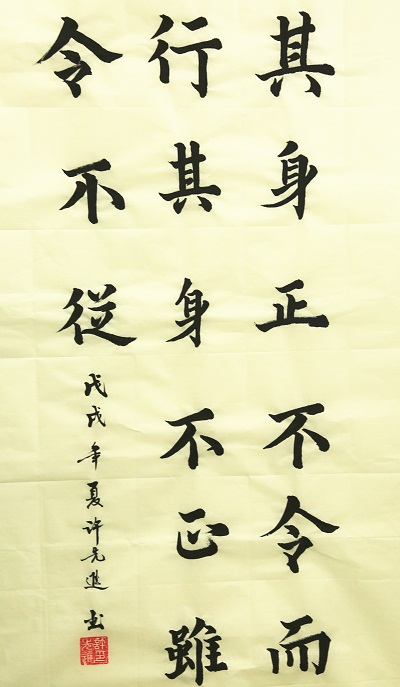 其身正不令而
行其身不正雖
令不從
戊戌年夏许先進书